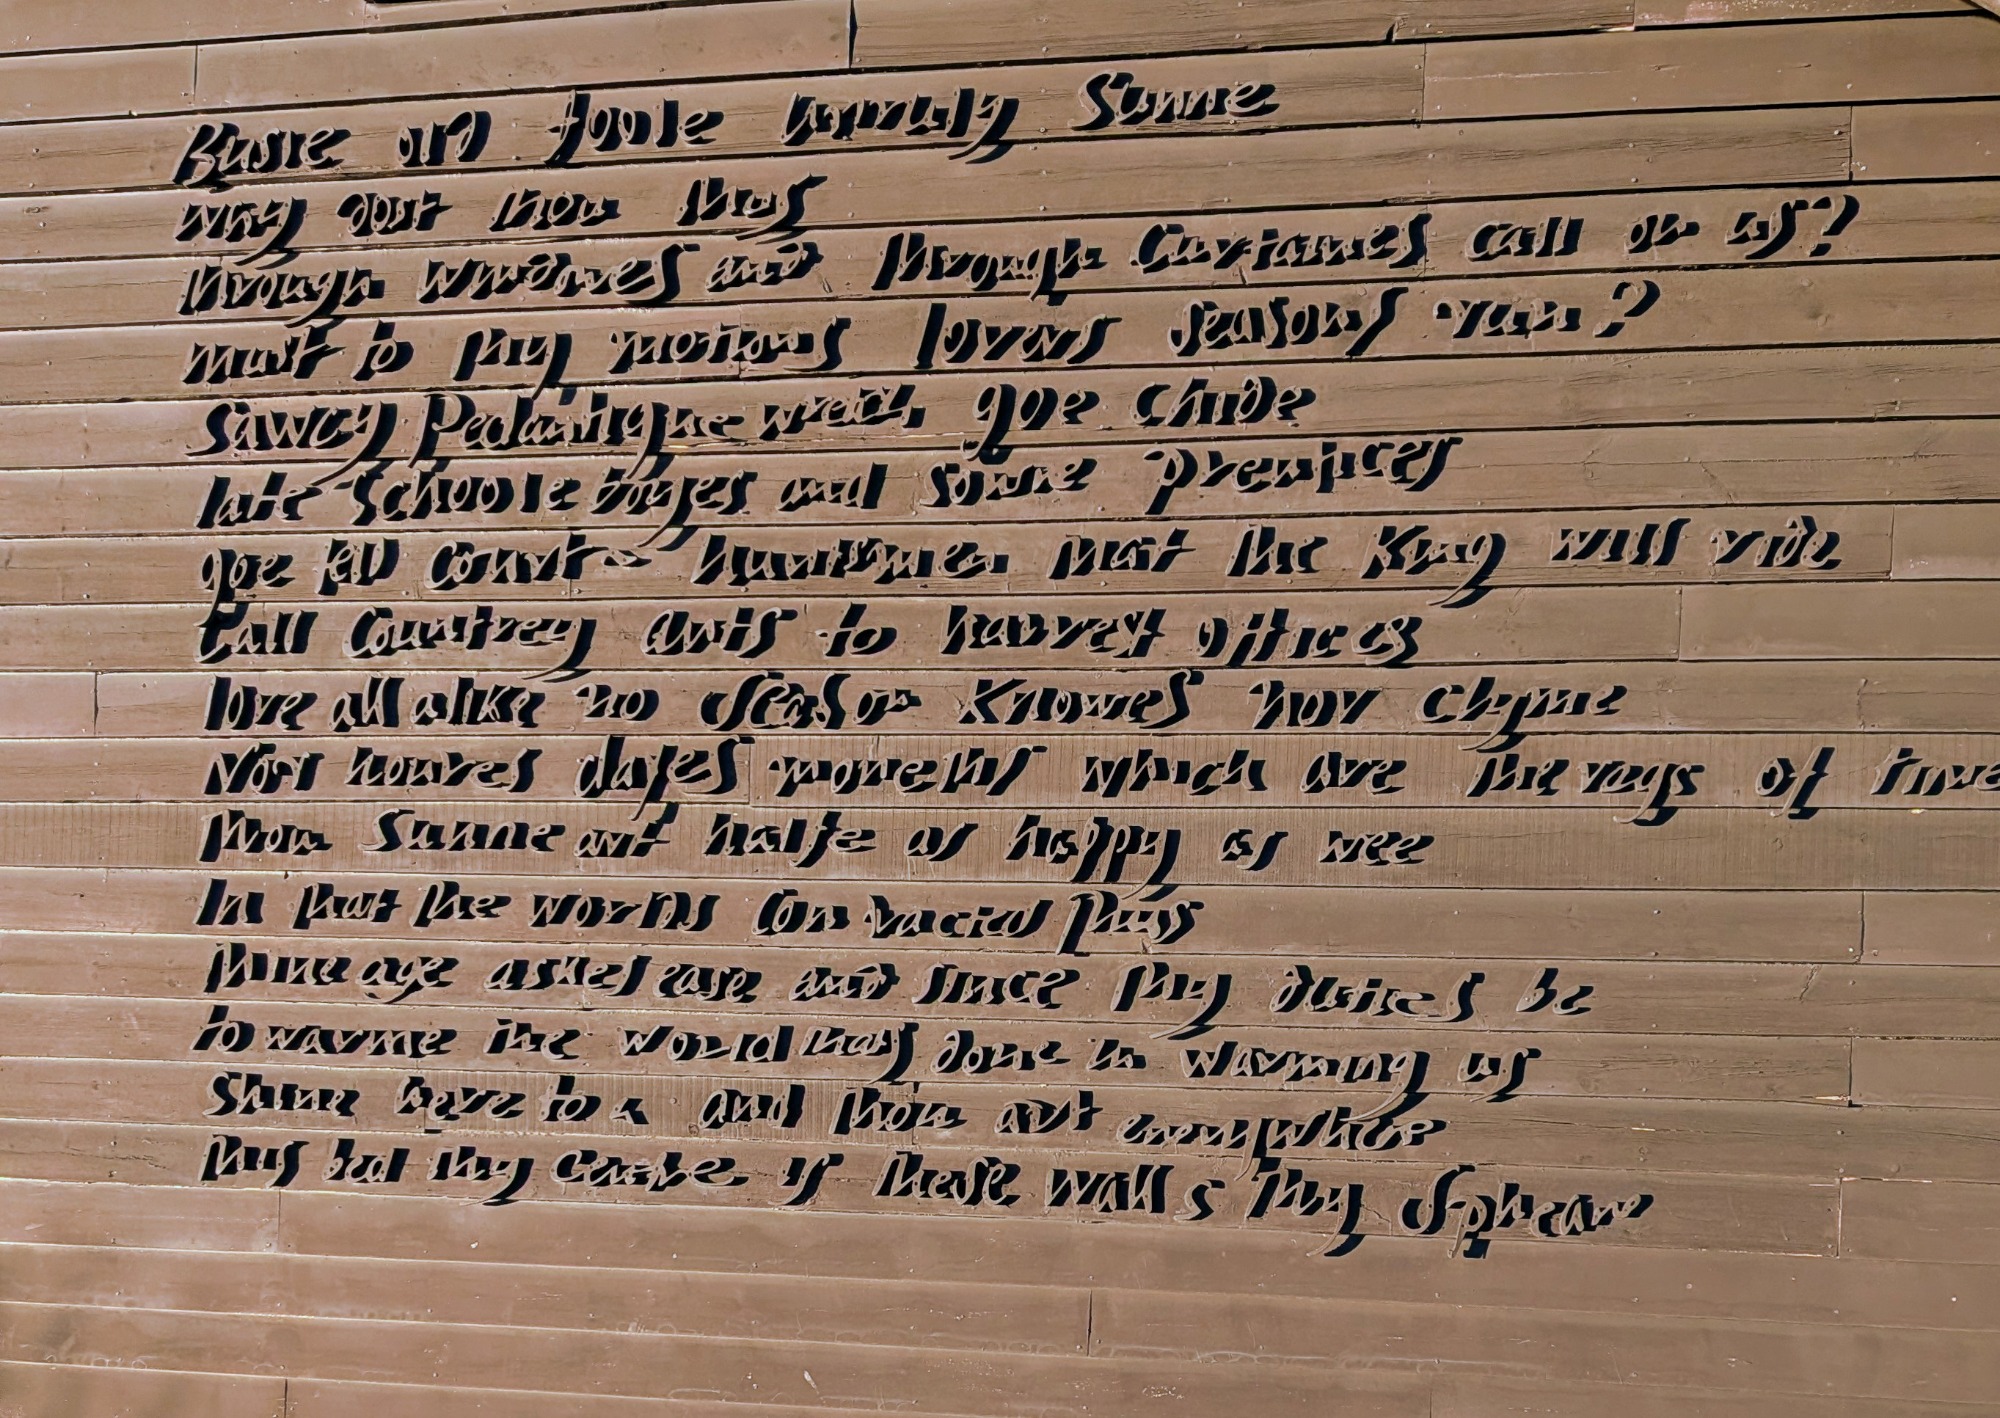 Busie old foole unruly Sunne
why dost thou thus
through windowes and through Curtaines call on us?
must to thy motions lovers seasons run?
Sawcy Pedantique wretch, goe chide
late Schooleboyes and sowre prentices
goe tell Court-huntsmen that the King will ride
Call Countrey ants to harvest offices
love all alike no season Knowes nor clyme
Nor houres dayes moneths which are the rags of time
thou Sunne art halfe as happy as wee
In that the worlds Contracted thus
thine age askes ease and since thy duties be
to warme the world thats done in warming us
Shine here to us and thou art every where
this bed thy center is these walls thy spheare